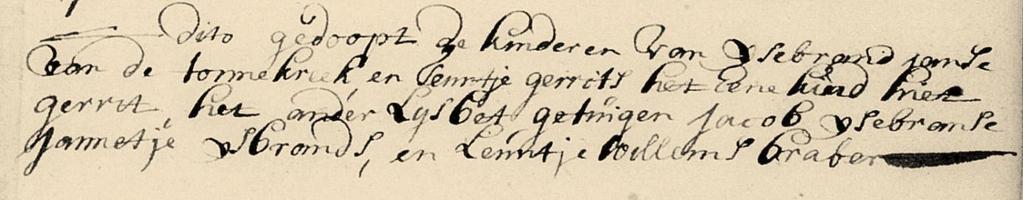 dito gedoopt de kinderen van ysebrand janse
van de tonnekriek en Lenntje gerrits het eene kind hiet
gerrit, het ander Lysbet getuigen jacob ysebranse
Jannetje ysbrands, en Lenntje Willems braber